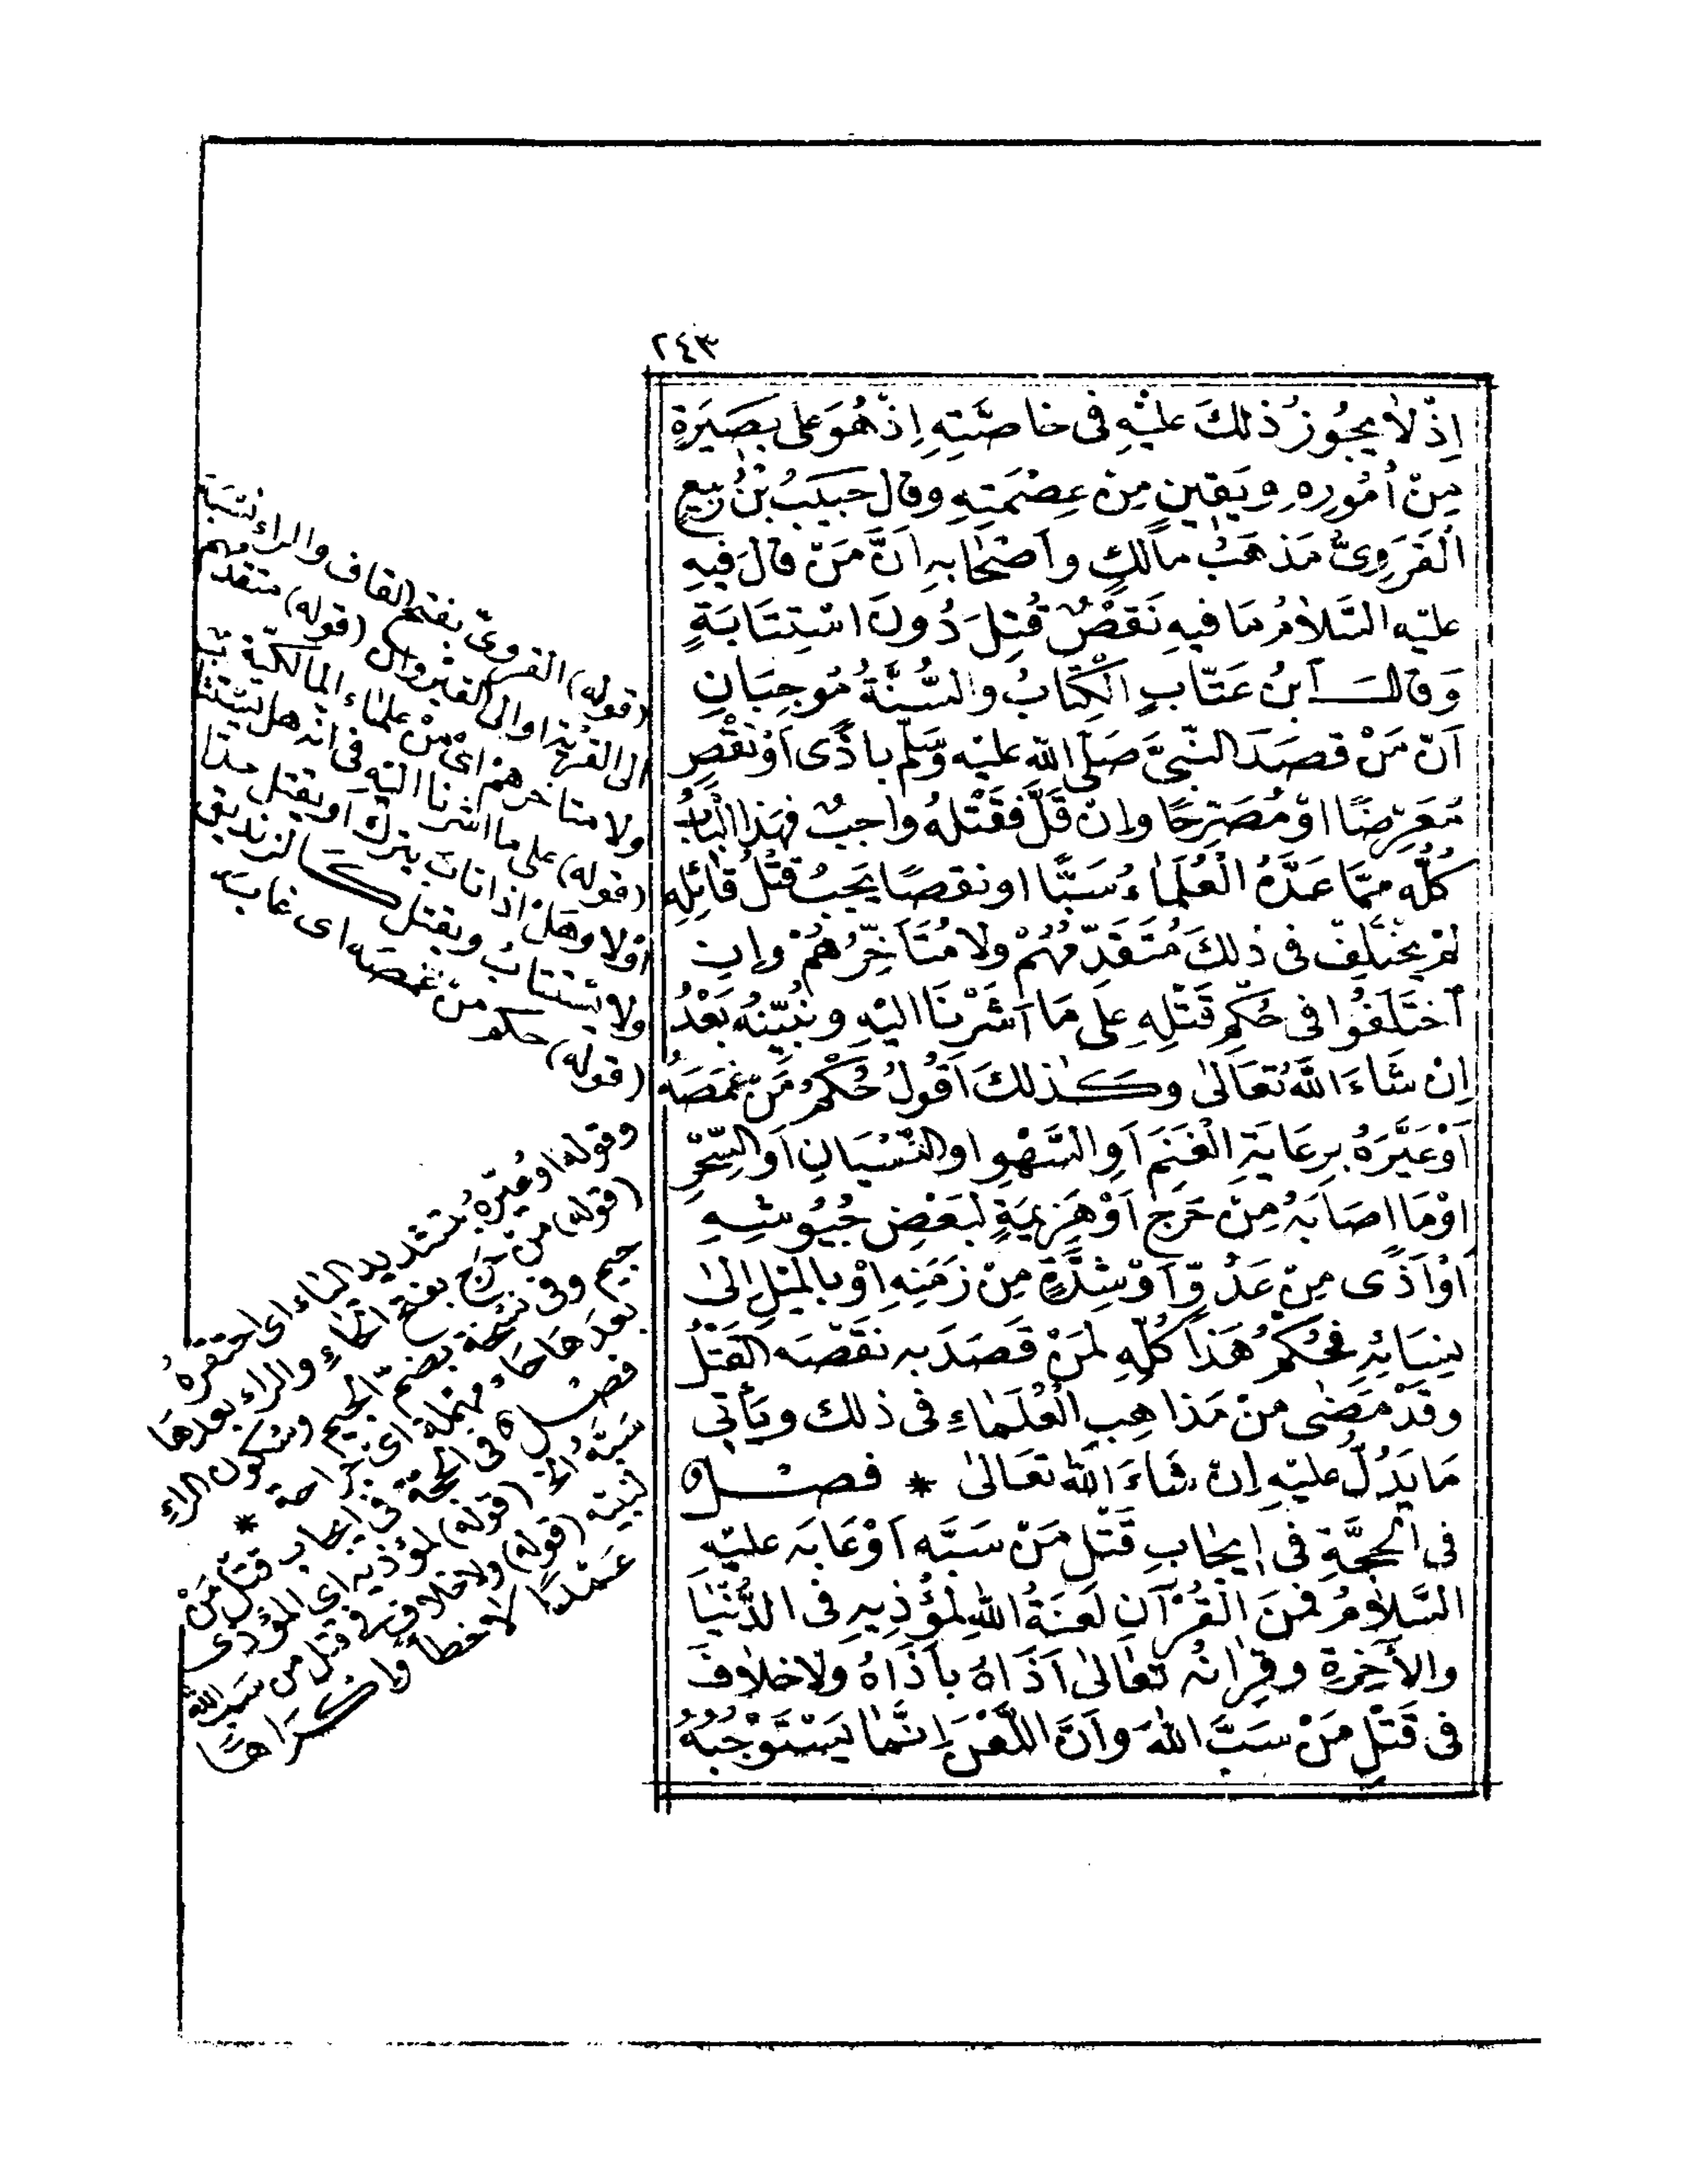 ٢٤٣
اِذْ لَا يَجُوزُ ذٰلِكَ عَلَيْهِ فِى خَاصَّتِهِ اِذْ هُوَ عَلٰى بَصِيرَةٍ
مِنْ اُمُورِهِ وَيَقِينٍ مِنْ عِصْمَتِهِ وقال حَبِيبُ بْنُ رَبِيعٍ
الْقَرَوِىُّ مَذْهَبُ مَالِكٍ واَصْحَابِهِ اَنَّ مَنْ قالَ فِيهِ
عليْهِ السَّلَامُ مَا فيهِ نَقْصٌ قُتِلَ دُونَ اسْتِتَابَةٍ
وَقالَ ابنُ عَتَّابٍ الْكِتَابُ والسُّنَّةُ مُوجِبَانِ
اَنَّ مَنْ قَصَدَ النَّبِىَّ صَلَّى اللّٰه عليْه وَسَلَّم بِاَذًى اَوْ نَقْصٍ
مُعَرِّضًا اوْ مُصَرِّحًا وإنْ قَلَّ فَقَتْلُهُ واجِبٌ فهٰذَا الْبَابُ
كُلُّه مِمَّا عَدَّهُ الْعُلَمَاءُ سَبًّا او نقصًا يَجِبُ قَتْلُ قَائِلِهِ
لمْ يَخْتَلِفْ فى ذٰلِكَ مُتَقَدِّمُهُمْ ولا مُتَأَخِّرُهُمْ وإنِ
اخْتَلَفُوا فى حُكْمِ قَتْلِهِ عَلٰى مَا اَشَرْنَا اليْهِ ونُبَيِّنُهُ بَعْدُ
اِنْ شَاءَ اللّٰهُ تعَالٰى وكَذٰلكَ اَقُولُ حُكْمُ مَنْ غَمَصَهُ
اَوْ عَيَّرَهُ بِرِعَايَةِ الْغَنَمِ اَوِ السَّهْوِ او النِّسْيَانِ اَو السِّحْرِ
اوْ مَا اصَابَهُ مِنْ جَرْحٍ اَوْ هَزِيمَةٍ لِبَعْضِ جُيُوشِهِ
اَوْ اَذًى مِنْ عَدُوِّهِ اَوْ شِدَّةٍ مِنْ زَمَنِهِ اوْ بالمَيْلِ اِلىٰ
نِسَائِهِ فَحُكْمُ هٰذَا كُلِّهِ لِمَنْ قَصَدَ بِهِ نَقْصَه الْقَتْلُ
وقَدْ مَضٰى منْ مَذاهِبِ الْعُلَمَاءِ فى ذلك ويَأْتِى
مَا يَدُلُّ عليْهِ اِنْ شَاءَ اللّٰه تعَالىٰ * فصْل
فى الْحُجَّةِ فى إيجَابِ قَتْلِ مَنْ سَبَّه اَوْ عَابَه عليْهِ
السَّلَامُ فمِنَ الْقُرْآنِ لَعْنَةُ اللّٰهِ لِمُؤْذِيهِ فى الدُّنْيَا
والآخِرَةِ وقِرَانُه تعَالىٰ اَذَاهُ بِأَذَاهُ ولا خلافَ
فى قَتْلِ مَنْ سَبَّ اللّٰهَ واَنَّ اللَّعْنَ اِنَّمَا يَسْتَوْجِبُهُ
(قوله) القروىّ بفتح القاف والراء نسبة
الى القرية او الى القيروان (قوله) متقدمهم
ولا متأخرهم اى من علماء المالكية
(قوله) على ما اشرنا اليه فى انه هل يستتاب
اولا وهل اذا تاب يترك او يقتل حدّا
ولا يستتاب ويقتل كالزنديق
(قوله) حكم من غمصه اى عابه
وقوله او عيّره بتشديد الياء اى احتقره
(قوله) من حرج بفتح الحاء والراء بعدها
جيم وفى نسخة بضم الجيم وسكون الراء
بعدها حاء مهملة اى جراحة *
فصل فى الحجة فى ايجاب قتل من
سبّه الخ (قوله) لمؤذيه اى المؤذى
لنبيه (قوله) ولا خلاف فى قتل من سب اللّٰه
عمدًا لا خطأ واكراهًا